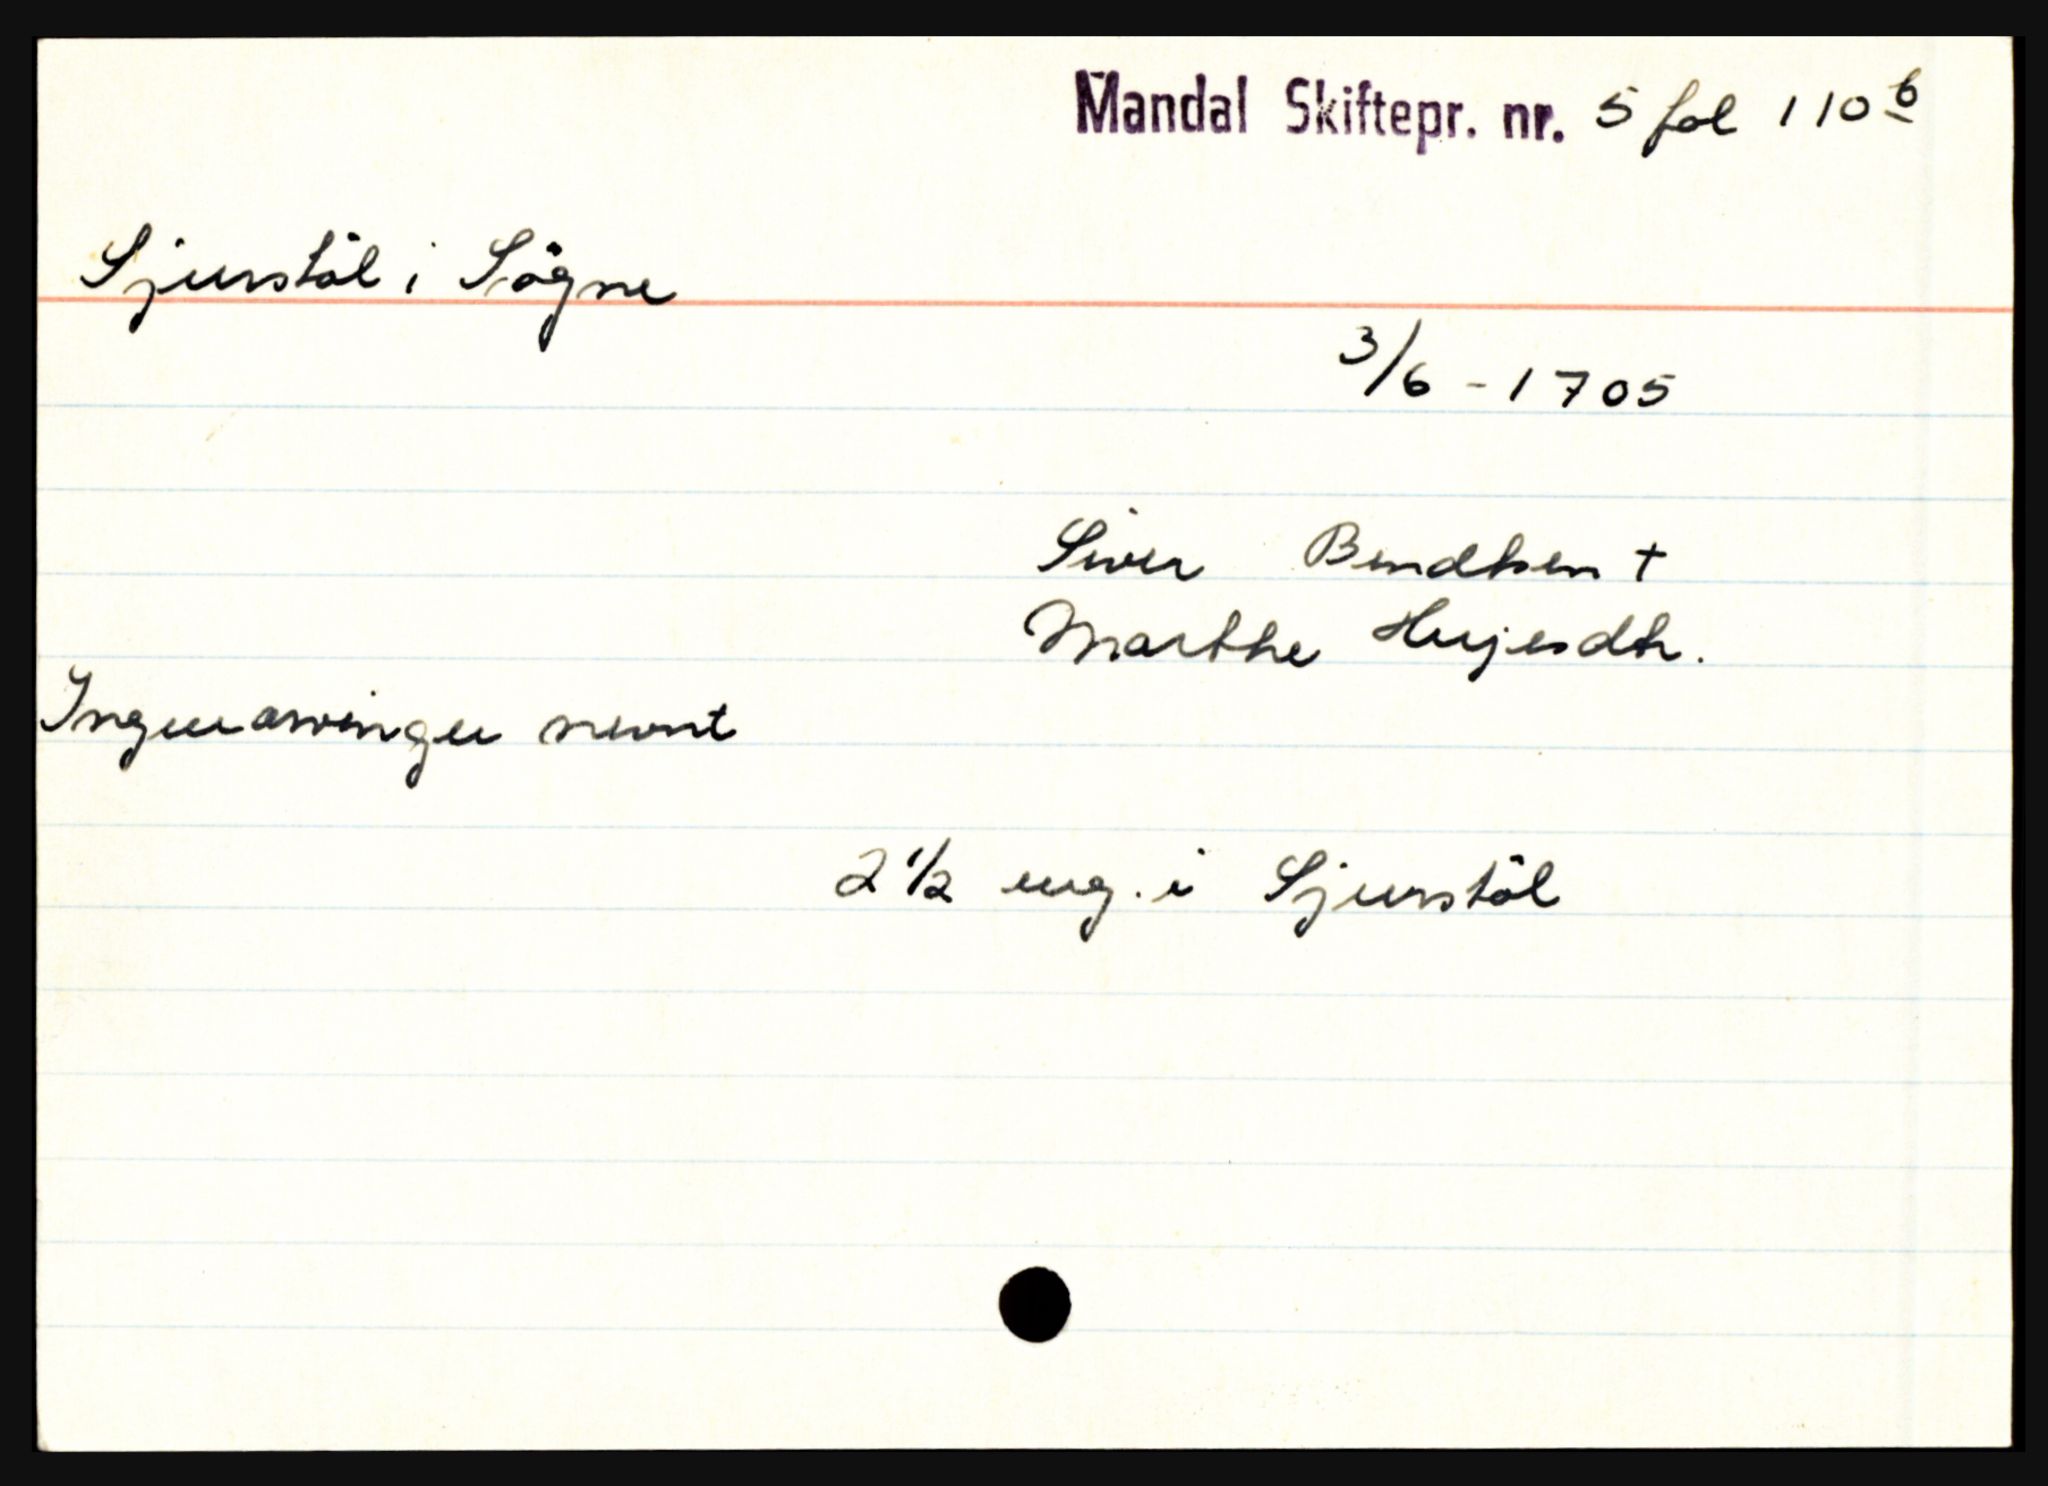 Mandal Skiftepr. nr. 5 fol 110 b
Sjurstöl i Sögne
3/6 - 1705
Siver Bendtsen +
Marthe Hujesdtr.
Ingen arvinger nevnt
2 1/2 eng. i Sjurstöl